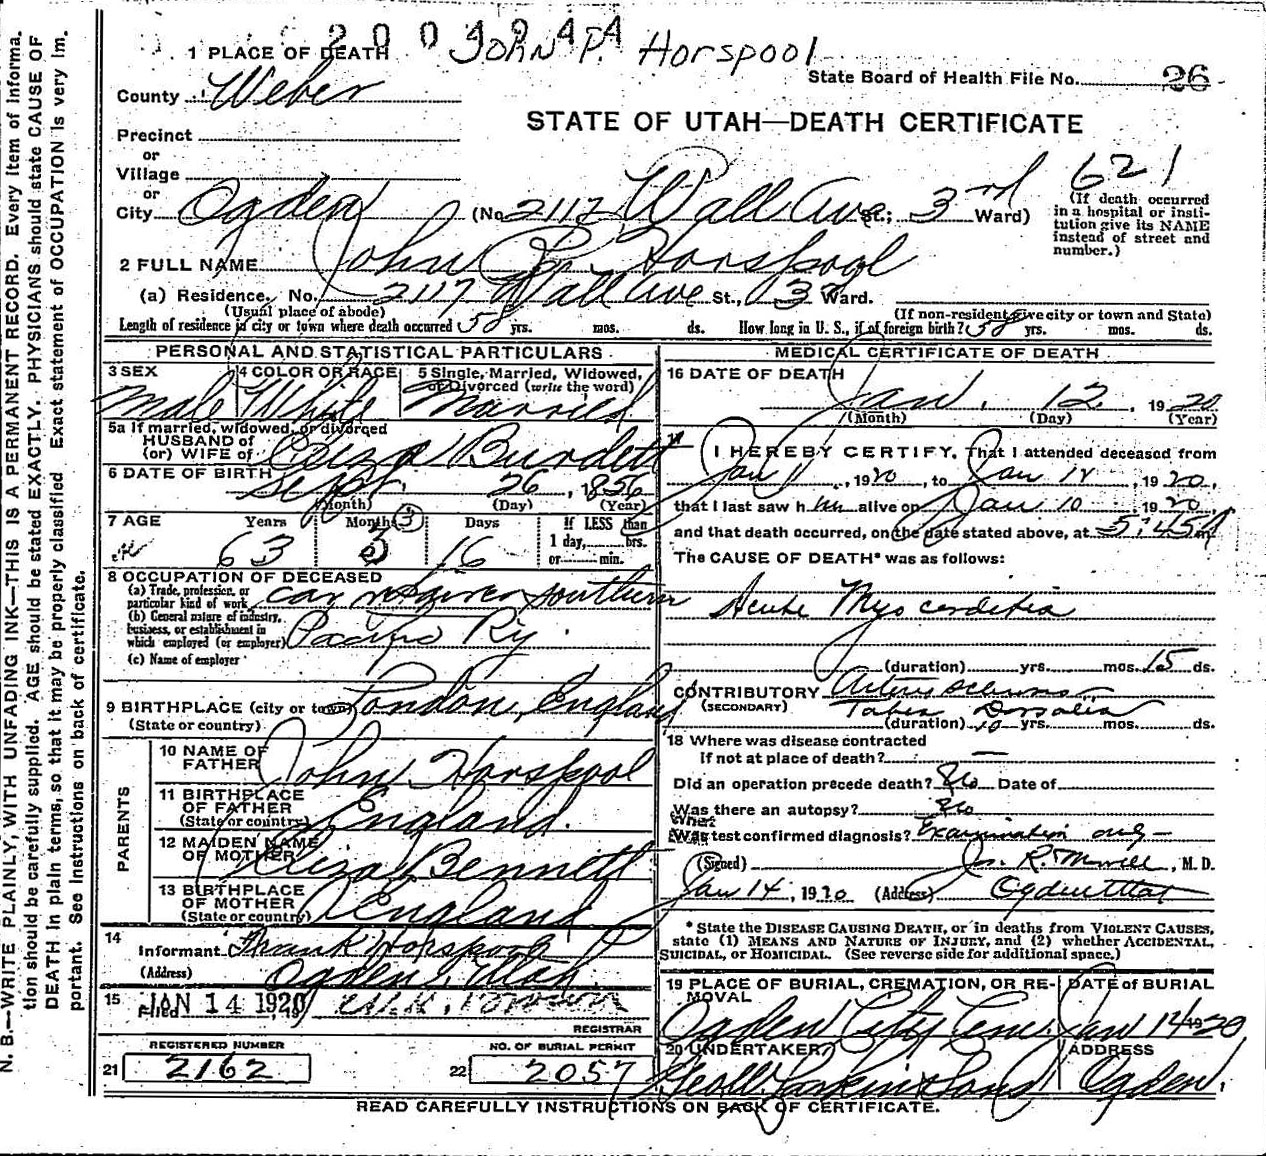 N. B.—WRITE PLAINLY, WITH UNFADING INK—THIS IS A PERMANENT RECORD. Every item of informa-
tion should be carefully supplied. AGE should be stated EXACTLY. PHYSICIANS should state CAUSE OF
DEATH in plain terms, so that it may be properly classified. Exact statement of OCCUPATION is very im-
portant. See instructions on back of certificate.
2004944 John P. Horspool
1 PLACE OF DEATH
State Board of Health File No. 26
County Weber
STATE OF UTAH—DEATH CERTIFICATE
Precinct
or
Village
or
621
City Ogden (No 2117 Wall Ave St.; 3rd Ward)
(If death occurred
in a hospital or insti-
tution give its NAME
instead of street and
number.)
2 FULL NAME John P. Horspool
(a) Residence. No. 2117 Wall Ave St., 3 Ward.
(Usual place of abode) (If non-resident give city or town and State)
Length of residence in city or town where death occurred 58 yrs. mos. ds. How long in U. S., if of foreign birth? 58 yrs. mos. ds.
PERSONAL AND STATISTICAL PARTICULARS
3 SEX 4 COLOR OR RACE 5 Single, Married, Widowed,
or Divorced (write the word)
Male White Married
5a If married, widowed, or divorced
HUSBAND of
(or) WIFE of Eliza Burdett
6 DATE OF BIRTH Sept. 26, 1856
(Month) (Day) (Year)
7 AGE Years Months Days If LESS than
1 day, hrs.
or min.
63 3 16
3
8 OCCUPATION OF DECEASED
(a) Trade, profession, or
particular kind of work car repairer southern
(b) General nature of industry,
business, or establishment in
which employed (or employer) Pacific Ry.
(c) Name of employer
9 BIRTHPLACE (city or town) London, England
(State or country)
PARENTS
10 NAME OF
FATHER John Horspool
11 BIRTHPLACE
OF FATHER
(State or country) England.
12 MAIDEN NAME
OF MOTHER Eliza Bennett
13 BIRTHPLACE
OF MOTHER
(State or country) England
14
Informant Frank Horspool
(Address) Ogden, Utah.
15 Filed JAN 14 1920, 19 Brown
REGISTRAR
REGISTERED NUMBER NO. OF BURIAL PERMIT
21 2162 22 2057
MEDICAL CERTIFICATE OF DEATH
16 DATE OF DEATH
Jan. 12, 1920
(Month) (Day) (Year)
I HEREBY CERTIFY, That I attended deceased from
Jan 1, 1920, to Jan 12, 1920,
that I last saw him alive on Jan 10 1920,
and that death occurred, on the date stated above, at 5:45 A m.
The CAUSE OF DEATH* was as follows:
Acute Myocarditis
(duration) yrs. mos. 15 ds.
CONTRIBUTORY Arterio sclerosis
(SECONDARY) Tabes Dorsalis
(duration) 10 yrs. mos. ds.
18 Where was disease contracted
If not at place of death? —
Did an operation precede death? No Date of
Was there an autopsy? No
What
Was test confirmed diagnosis? Examination only —
(Signed) Jos. R. Morrell, M. D.
Jan 14, 1920 (Address) Ogden Utah
* State the DISEASE CAUSING DEATH, or in deaths from VIOLENT CAUSES,
state (1) MEANS AND NATURE OF INJURY, and (2) whether ACCIDENTAL,
SUICIDAL, or HOMICIDAL. (See reverse side for additional space.)
19 PLACE OF BURIAL, CREMATION, OR RE-
MOVAL
DATE of BURIAL
Ogden City Cem. Jan 14 1920
20 UNDERTAKER ADDRESS
Larkin & Sons Ogden.
READ CAREFULLY INSTRUCTIONS ON BACK OF CERTIFICATE.